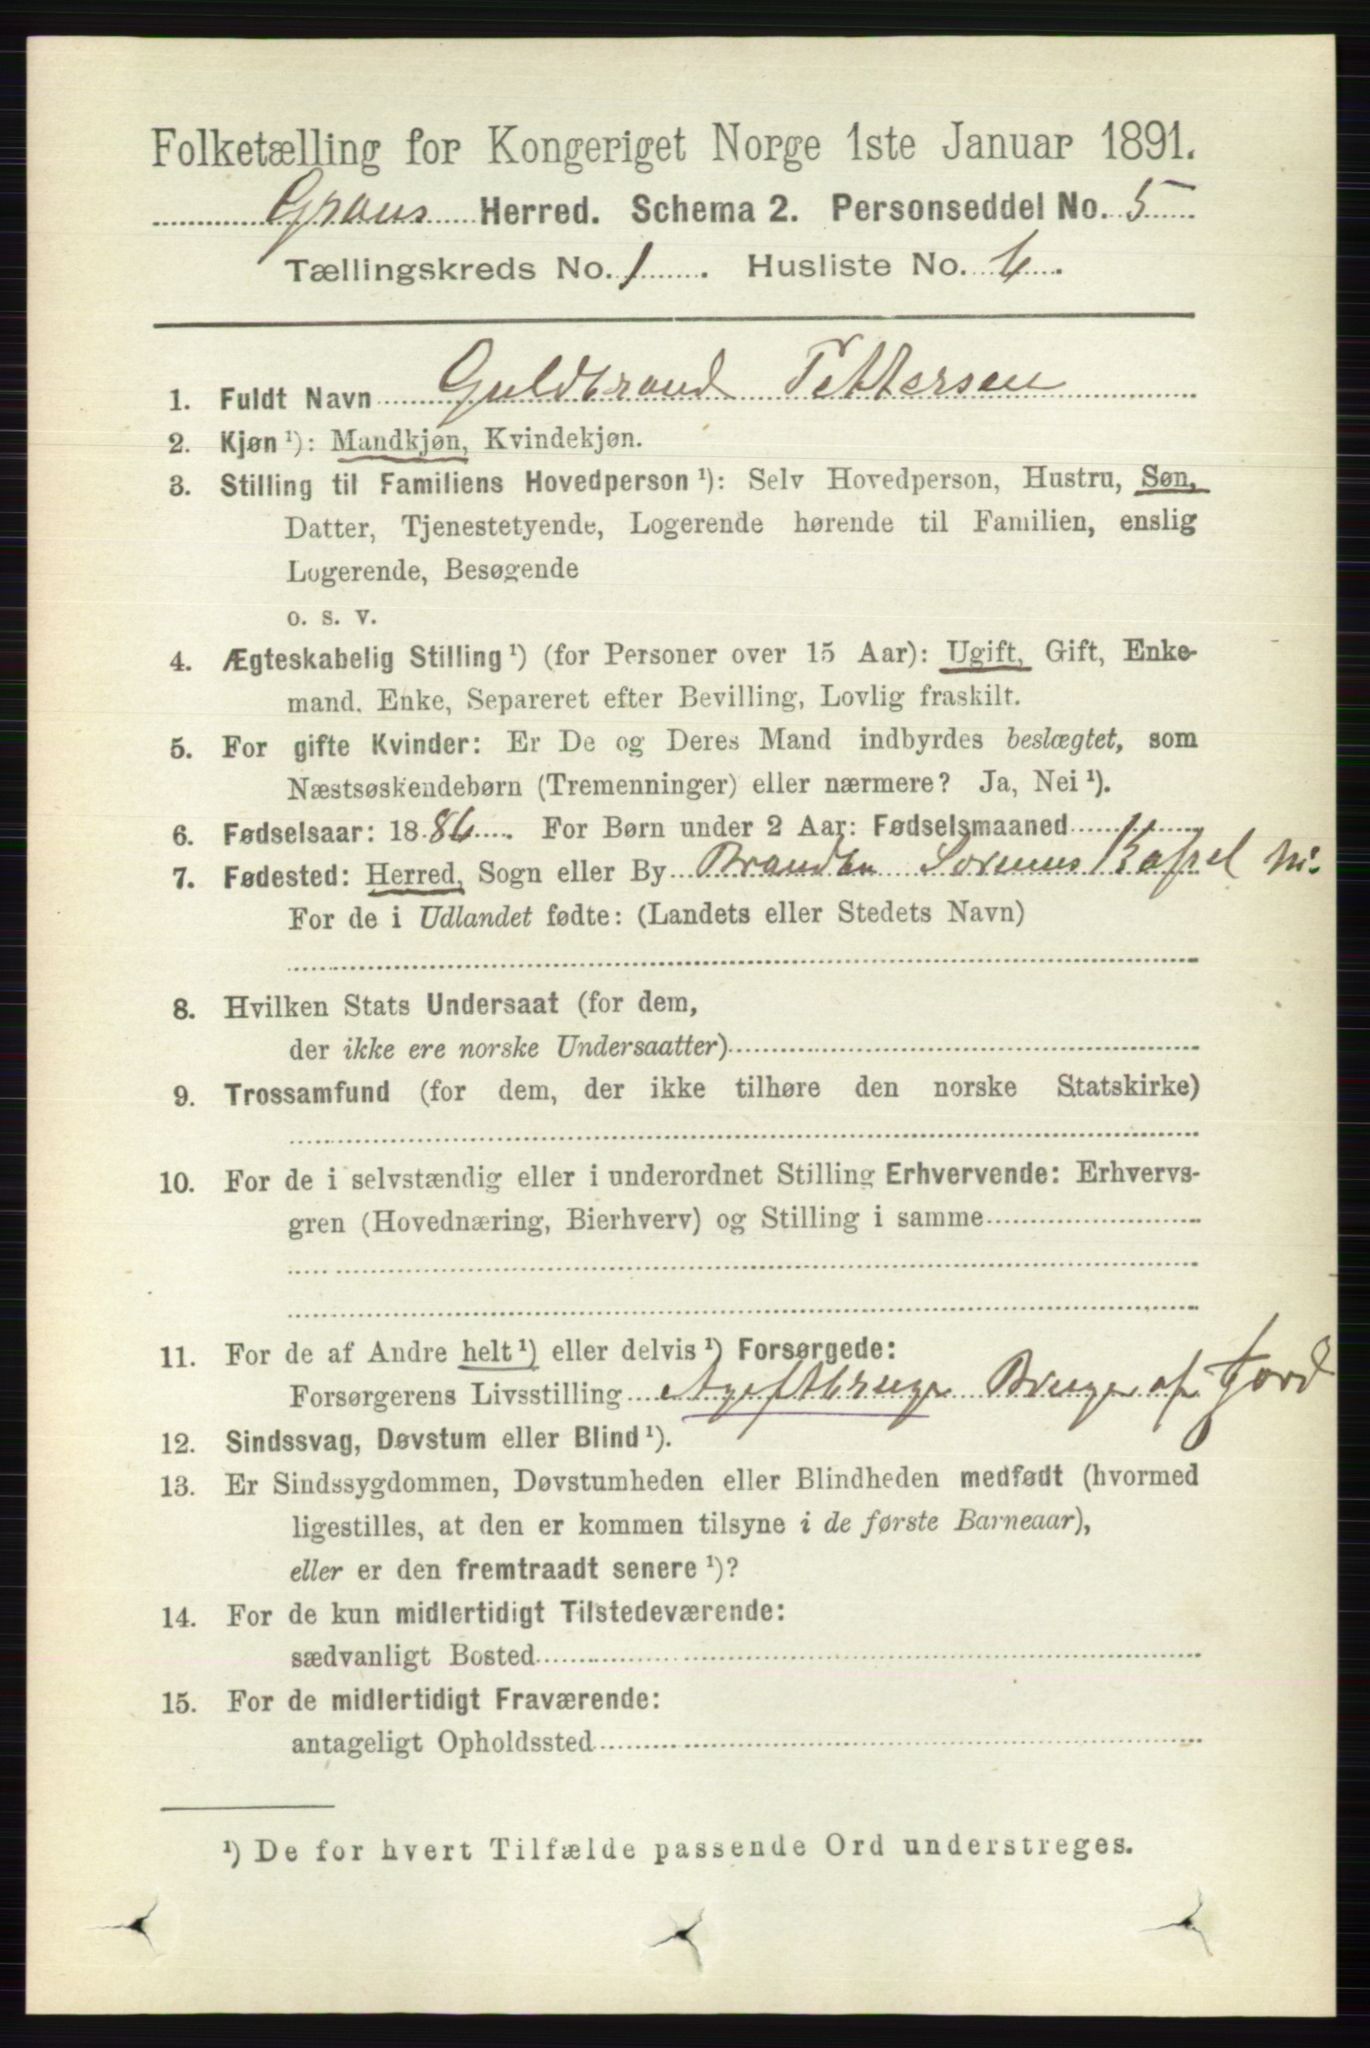 Folketælling for Kongeriget Norge 1ste Januar 1891.
Grans Herred. Schema 2. Personseddel No. 5
Tællingskreds No. 1. Husliste No. 6.
1. Fuldt Navn Guldbrand Pettersen
2. Kjøn ¹): Mandkjøn, Kvindekjøn.
3. Stilling til Familiens Hovedperson ¹): Selv Hovedperson, Hustru, Søn,
Datter, Tjenestetyende, Logerende hørende til Familien, enslig
Logerende, Besøgende
o. s. v.
4. Ægteskabelig Stilling ¹) (for Personer over 15 Aar): Ugift, Gift, Enke-
mand, Enke, Separeret efter Bevilling, Lovlig fraskilt.
5. For gifte Kvinder: Er De og Deres Mand indbyrdes beslægtet, som
Næstsøskendebørn (Tremenninger) eller nærmere? Ja, Nei ¹).
6. Fødselsaar: 1886. For Børn under 2 Aar: Fødselsmaaned
7. Fødested: Herred, Sogn eller By Brandbu
For de i Udlandet fødte: (Landets eller Stedets Navn)
8. Hvilken Stats Undersaat (for dem,
der ikke ere norske Undersaatter)
9. Trossamfund (for dem, der ikke tilhøre den norske Statskirke)
10. For de i selvstændig eller i underordnet Stilling Erhvervende: Erhvervs-
gren (Hovednæring, Bierhverv) og Stilling i samme
11. For de af Andre helt ¹) eller delvis ¹) Forsørgede:
Forsørgerens Livsstilling Bruger af Jord
12. Sindssvag, Døvstum eller Blind ¹).
13. Er Sindssygdommen, Døvstumheden eller Blindheden medfødt (hvormed
ligestilles, at den er kommen tilsyne i de første Barneaar),
eller er den fremtraadt senere ¹)?
14. For de kun midlertidigt Tilstedeværende:
sædvanligt Bosted
15. For de midlertidigt Fraværende:
antageligt Opholdssted
¹) De for hvert Tilfælde passende Ord understreges.